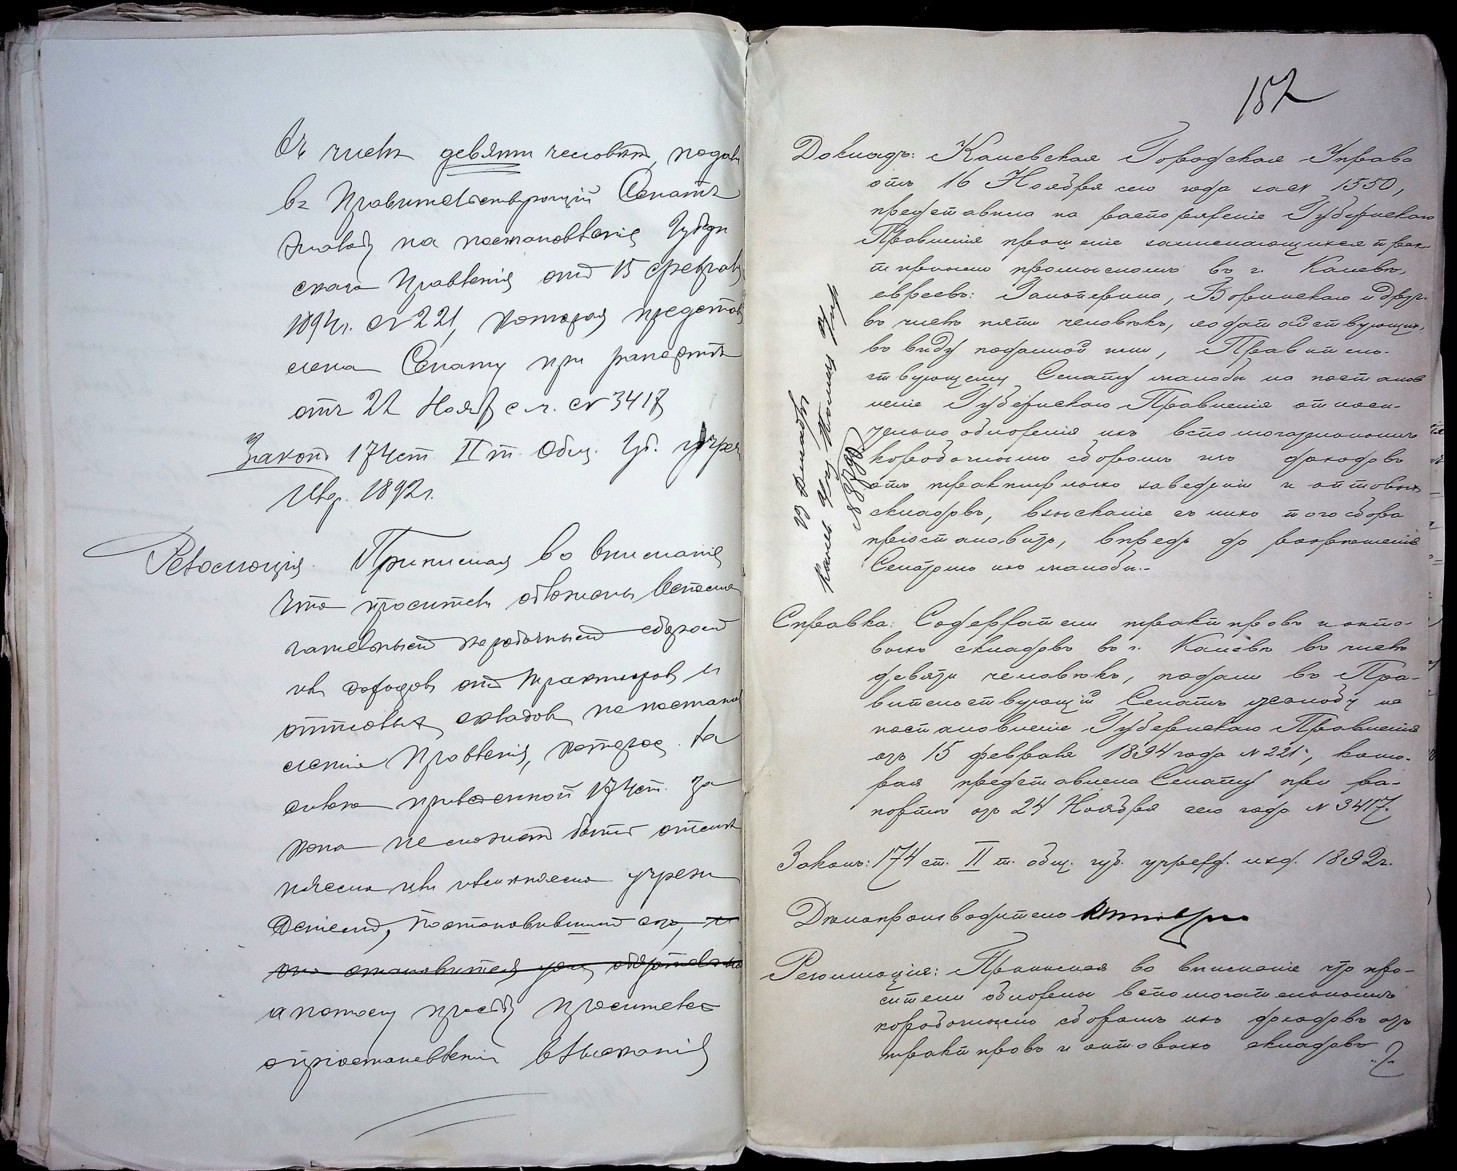 въ числѣ девяти человѣкъ, подал
въ Правительствующій Сенатъ
жалобу на постановленіе Губерн
скаго Правленія отъ 15 Феврал
1894 г. № 221, которая представ
лена Сенату при рапортѣ
отъ 22 Нояб. с. г. № 3417
Законъ 174 ст. II т. Общ. Губ. Учреж
Изд. 1892 г.
Резолюція. Принимая во вниманіе
что просители обложены вспомо
гательнымъ коробочнымъ сборомъ
изъ доходовъ отъ трактировъ и
оптовыхъ складовъ, по постанов
ленію Правленія, которое, въ
силу приведенной 174 ст. за
кона не можетъ быть отмѣ
нено или измѣнено учреж
деніемъ, постановившимъ его,
оно становится обязательны
а потому просьбу просителей
о пріостановленіи взысканія
152
Докладъ: Каневская Городская Управа
отъ 16 Ноября сего года за № 1550,
представила на распоряженіе Губернскаго
Правленія прошеніе занимающихся трак-
тирнымъ промысломъ въ г. Каневѣ,
евреевъ: Заполерина, Воринскаго и друг.
въ числѣ пяти человѣкъ, ходатайствующихъ,
въ виду поданной ими, Правитель-
ствующему Сенату жалобы на постанов
леніе Губернскаго Правленія относи-
тельно обложенія ихъ вспомогательнымъ
коробочнымъ сборомъ изъ доходовъ
отъ трактирныхъ заведеній и оптовыхъ
складовъ, взысканіе съ нихъ того сбора
пріостановить, впредь до разрѣшенія
Сенатомъ ихъ жалобы.-
13 Декабря
Канев. Гор. Управ
№ 8780
Справка: Содержатели трактировъ и опто-
выхъ складовъ въ г. Каневѣ въ числѣ
девяти человѣкъ, подали въ Пра-
вительствующій Сенатъ жалобу на
постановленіе Губернскаго Правленія
отъ 15 февраля 1894 года № 221, кото-
рая представлена Сенату при ра-
портѣ отъ 24 Ноября сего года № 3417.
Законъ: 174 ст. II т. общ. губ. учрежд. изд. 1892 г.
Дѣлопроизводитель
Резолюція: Принимая во вниманіе что про-
сители обложены вспомогательнымъ
коробочнымъ сборомъ изъ доходовъ отъ
трактировъ и оптовыхъ складовъ